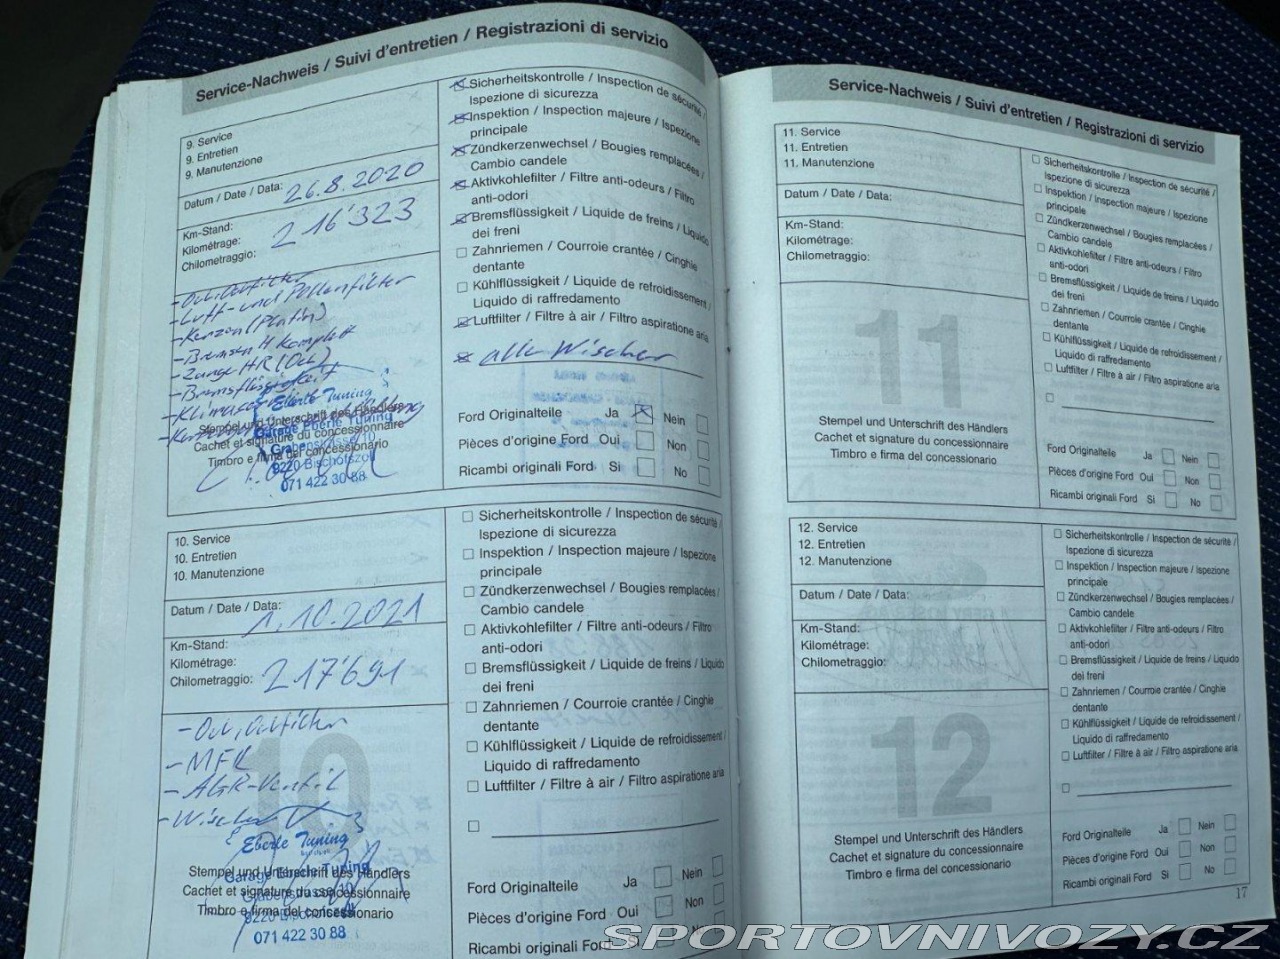 Service-Nachweis / Suivi d'entretien / Registrazioni di servizio
9. Service
9. Entretien
9. Manutenzione
Datum / Date / Data: 26.8.2020
Km-Stand:
Kilométrage: 216'323
Chilometraggio:
- Oel, Oelfilter
- Luft- und Pollenfilter
- Kerzen (Platin)
- Bremsen H komplett
- HR (Och)
- Bremsflüssigkeit
Eberle Tuning
Stempel und Unterschrift des Händlers
Garage Eberle Tuning
Cachet et signature du concessionnaire
Grabenstrasse 10
Timbro e firma del concessionario
9220 Bischofszell
071 422 30 88
Sicherheitskontrolle / Inspection de sécurité /
Ispezione di sicurezza
Inspektion / Inspection majeure / Ispezione
principale
Zündkerzenwechsel / Bougies remplacées /
Cambio candele
Aktivkohlefilter / Filtre anti-odeurs / Filtro
anti-odori
Bremsflüssigkeit / Liquide de freins / Liquido
dei freni
Zahnriemen / Courroie crantée / Cinghie
dentante
Kühlflüssigkeit / Liquide de refroidissement /
Liquido di raffredamento
Luftfilter / Filtre à air / Filtro aspiratione aria
alle Wischer
Ford Originalteile Ja Nein
Pièces d'origine Ford Oui Non
Ricambi originali Ford Si No
10. Service
10. Entretien
10. Manutenzione
Datum / Date / Data: 1.10.2021
Km-Stand:
Kilométrage: 217'691
Chilometraggio:
10
- Oel, Oelfilter
- MFK
- AGR-Ventil
- Wischer
Eberle Tuning
Stempel und Unterschrift des Händlers
Garage Eberle Tuning
Cachet et signature du concessionnaire
Grabenstrasse 10
Timbro e firma del concessionario
9220 Bischofszell
071 422 30 88
Sicherheitskontrolle / Inspection de sécurité /
Ispezione di sicurezza
Inspektion / Inspection majeure / Ispezione
principale
Zündkerzenwechsel / Bougies remplacées /
Cambio candele
Aktivkohlefilter / Filtre anti-odeurs / Filtro
anti-odori
Bremsflüssigkeit / Liquide de freins / Liquido
dei freni
Zahnriemen / Courroie crantée / Cinghie
dentante
Kühlflüssigkeit / Liquide de refroidissement /
Liquido di raffredamento
Luftfilter / Filtre à air / Filtro aspiratione aria
Ford Originalteile Ja Nein
Pièces d'origine Ford Oui Non
Ricambi originali Ford Si No
Service-Nachweis / Suivi d'entretien / Registrazioni di servizio
11. Service
11. Entretien
11. Manutenzione
Datum / Date / Data:
Km-Stand:
Kilométrage:
Chilometraggio:
11
Stempel und Unterschrift des Händlers
Cachet et signature du concessionnaire
Timbro e firma del concessionario
Sicherheitskontrolle / Inspection de sécurité /
Ispezione di sicurezza
Inspektion / Inspection majeure / Ispezione
principale
Zündkerzenwechsel / Bougies remplacées /
Cambio candele
Aktivkohlefilter / Filtre anti-odeurs / Filtro
anti-odori
Bremsflüssigkeit / Liquide de freins / Liquido
dei freni
Zahnriemen / Courroie crantée / Cinghie
dentante
Kühlflüssigkeit / Liquide de refroidissement /
Liquido di raffredamento
Luftfilter / Filtre à air / Filtro aspiratione aria
Ford Originalteile Ja Nein
Pièces d'origine Ford Oui Non
Ricambi originali Ford Si No
12. Service
12. Entretien
12. Manutenzione
Datum / Date / Data:
Km-Stand:
Kilométrage:
Chilometraggio:
12
Stempel und Unterschrift des Händlers
Cachet et signature du concessionnaire
Timbro e firma del concessionario
Sicherheitskontrolle / Inspection de sécurité /
Ispezione di sicurezza
Inspektion / Inspection majeure / Ispezione
principale
Zündkerzenwechsel / Bougies remplacées /
Cambio candele
Aktivkohlefilter / Filtre anti-odeurs / Filtro
anti-odori
Bremsflüssigkeit / Liquide de freins / Liquido
dei freni
Zahnriemen / Courroie crantée / Cinghie
dentante
Kühlflüssigkeit / Liquide de refroidissement /
Liquido di raffredamento
Luftfilter / Filtre à air / Filtro aspiratione aria
Ford Originalteile Ja Nein
Pièces d'origine Ford Oui Non
Ricambi originali Ford Si No
17
SPORTOVNIVOZY.CZ